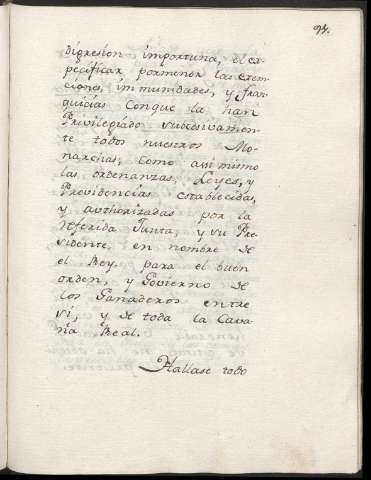 94.
digresion importuna, el ex-
pecificar pormenor las exem-
ciones, immunidades, y fran-
quicias Conque la han
Privilegiado subcesivamen-
te todos nuestros Mo-
narchas; Como assi mismo
las ordenanzas, Leyes, y
Providencias establecidas,
y authorizadas por la
referida Junta, y su Pre-
sidente, en nombre de
el Rey para el buen
orden, y Govierno de
los Ganaderos entre
si, y de toda la Cava-
ña Real.
Hallase todo